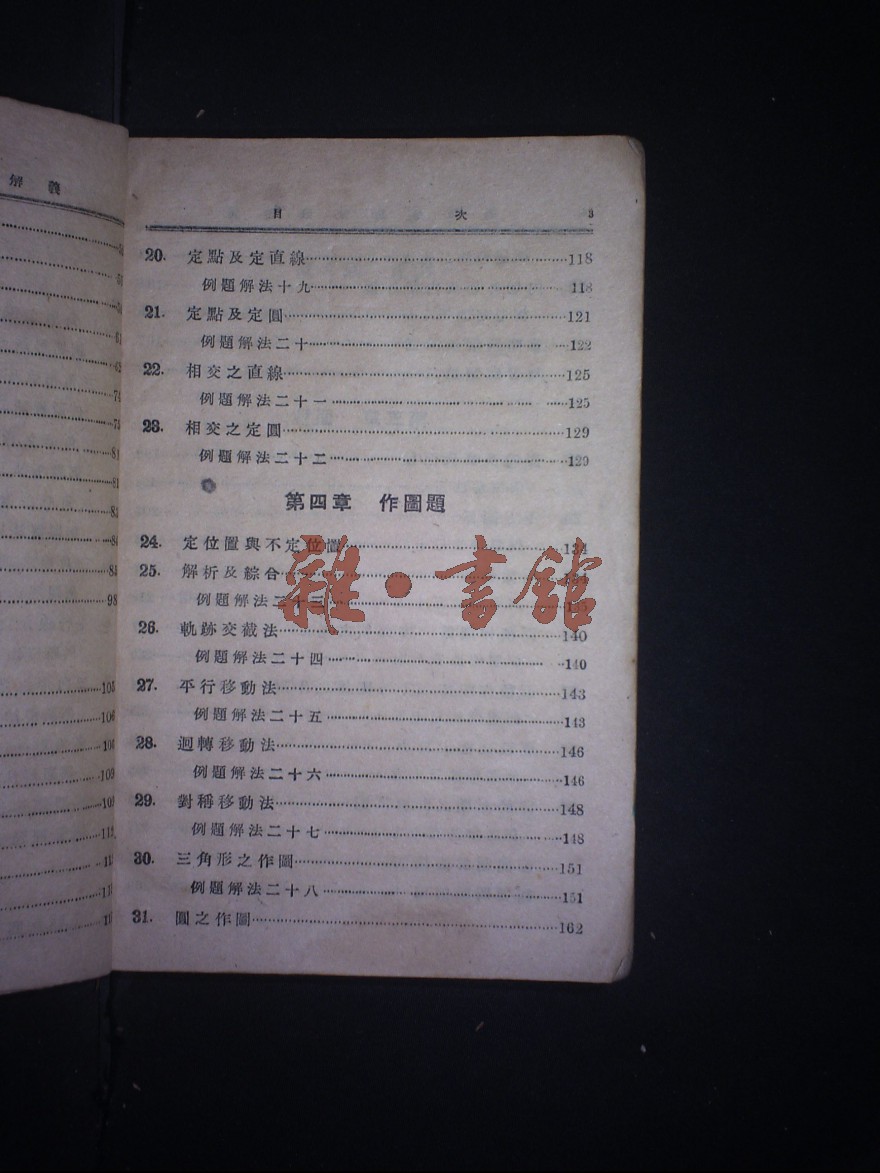 解義
目 次 3
20. 定點及定直線……118
例題解法十九……118
21. 定點及定圓……121
例題解法二十……122
22. 相交之直線……125
例題解法二十一……125
23. 相交之定圓……129
例題解法二十二……129
第四章 作圖題
24. 定位置與不定位置……134
25. 解析及綜合……
例題解法二十三……
26. 軌跡交截法……140
例題解法二十四……140
27. 平行移動法……143
例題解法二十五……143
28. 迴轉移動法……146
例題解法二十六……146
29. 對稱移動法……148
例題解法二十七……148
30. 三角形之作圖……151
例題解法二十八……151
31. 圓之作圖……162
雜·書館
81
81
83
84
84
98
105
106
109